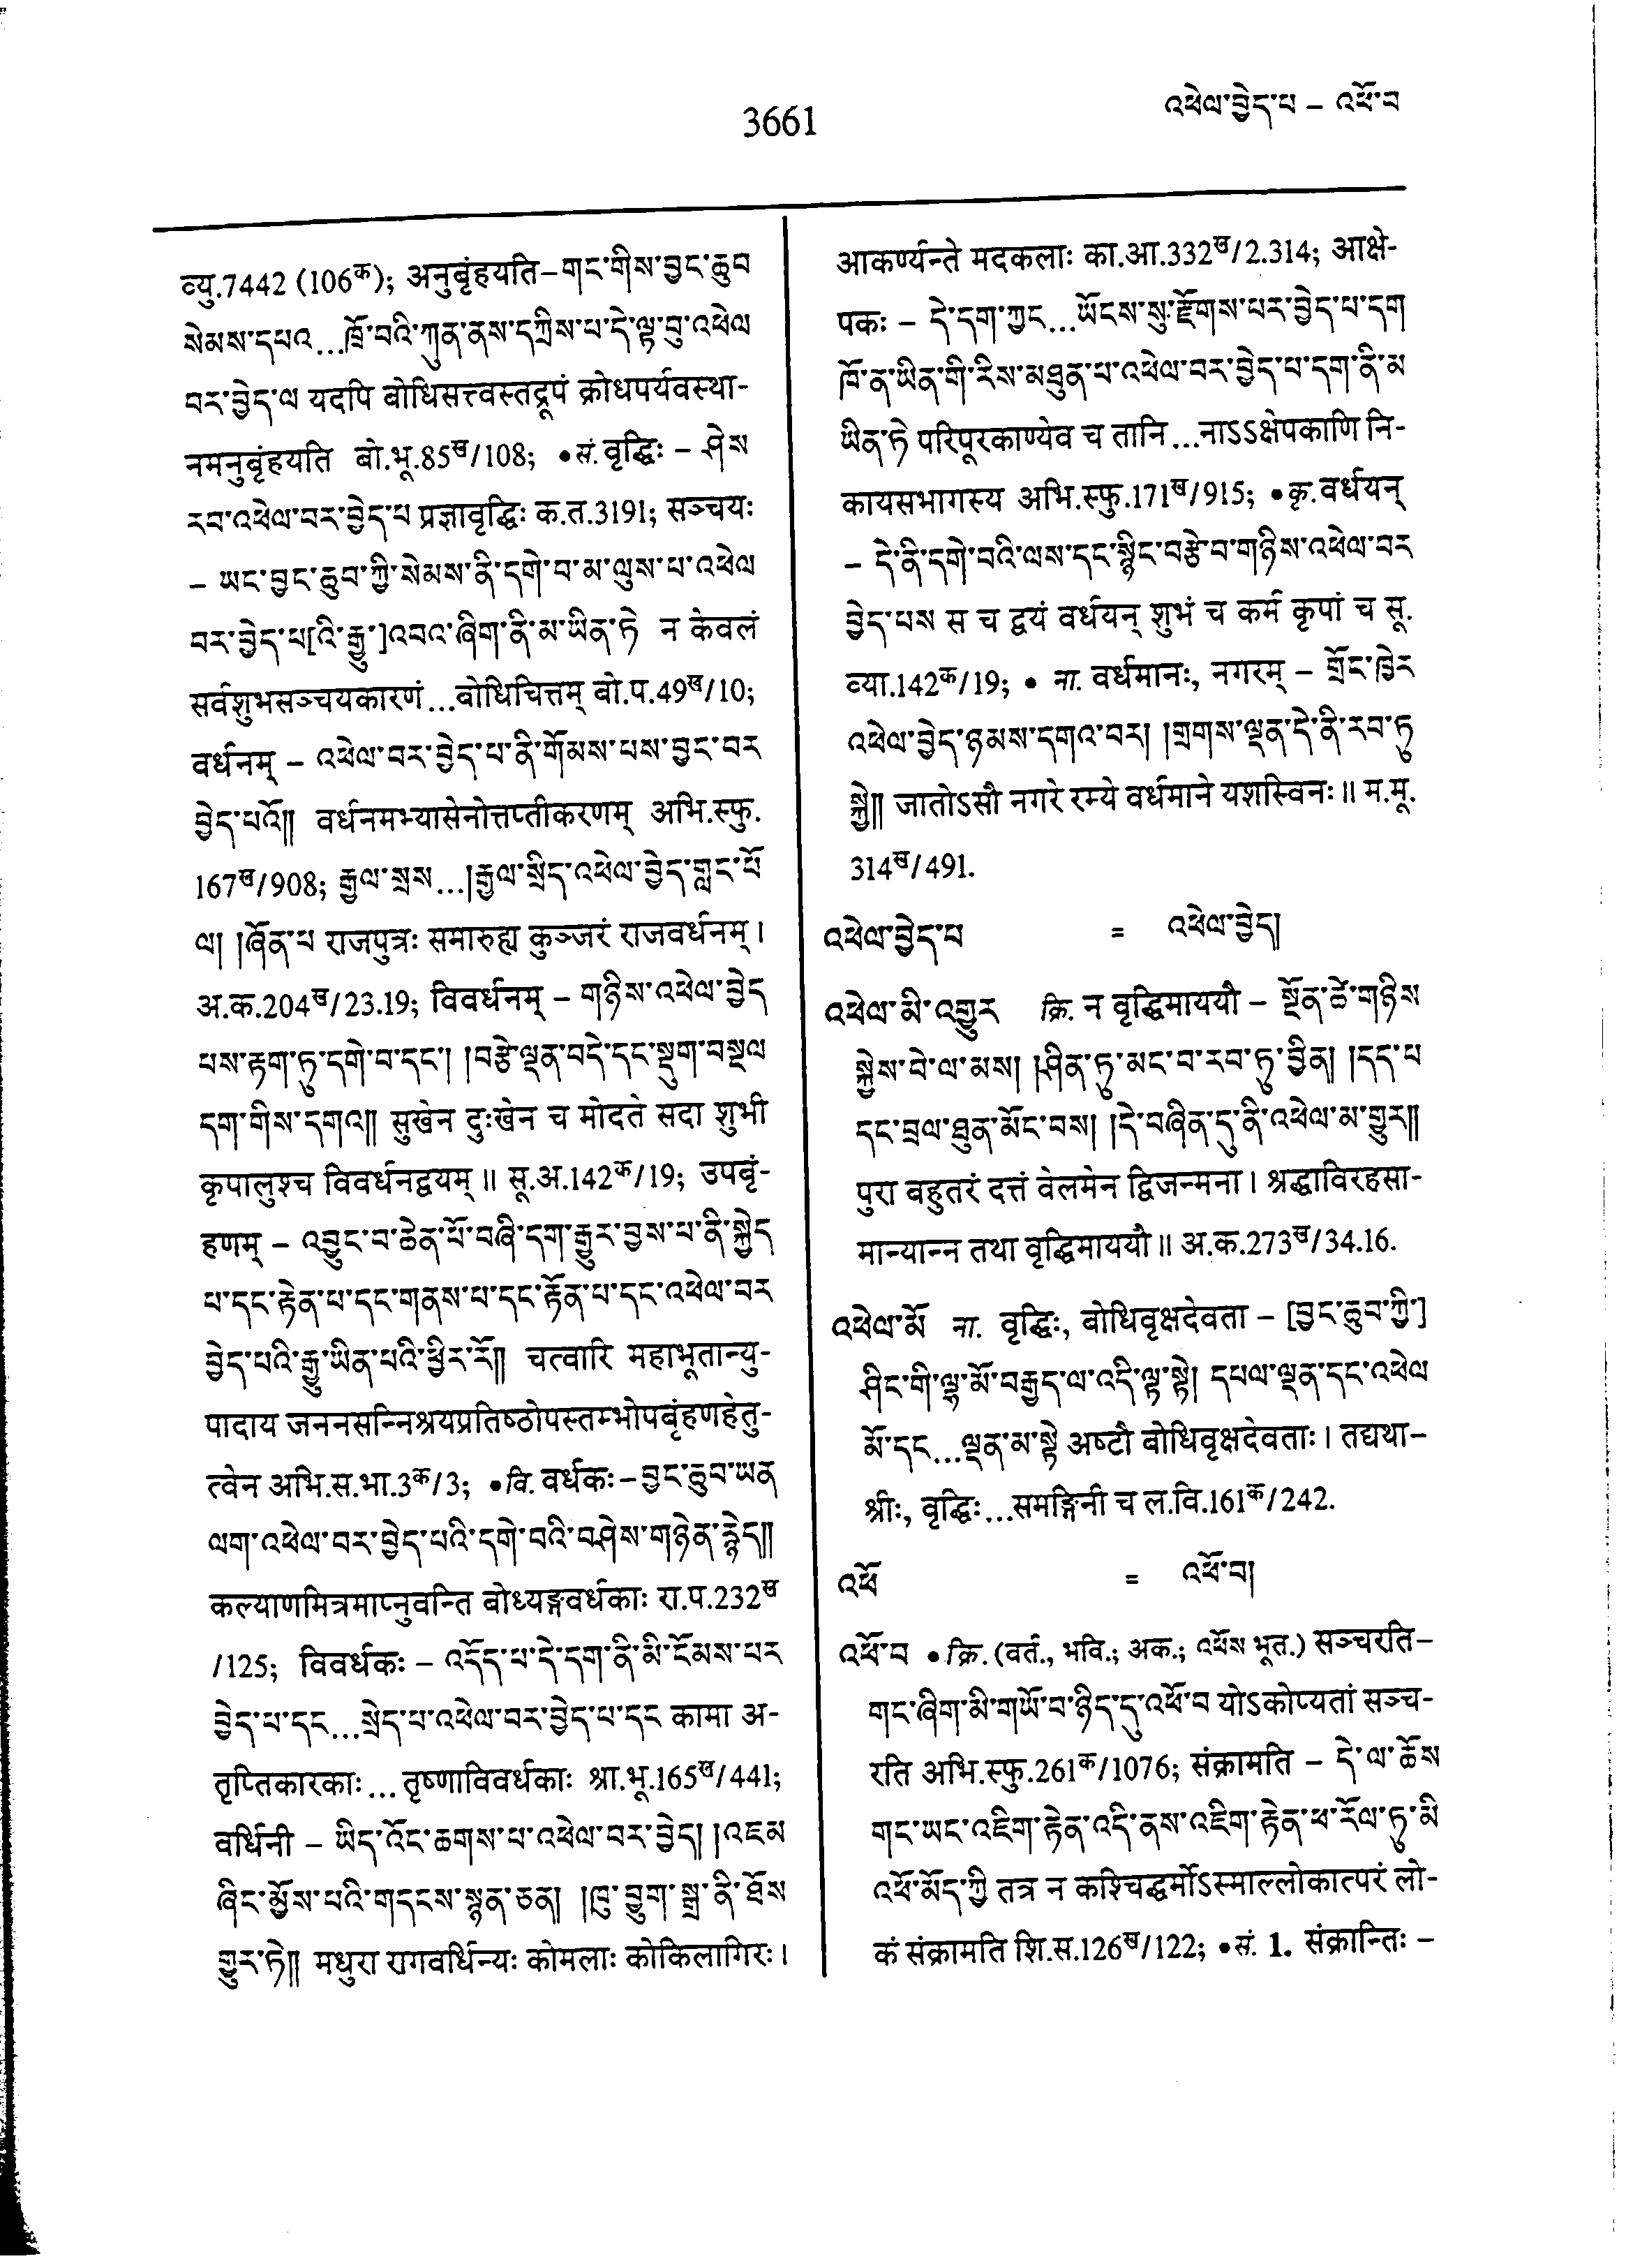 3661
འཕེལ་བྱེད་པ – འཕོ་བ
व्यु.7442 (106क); अनुबृंहयति–གང་གིས་བྱང་ཆུབ
སེམས་དཔའ...ཁྲོ་བའི་ཀུན་ནས་དཀྲིས་པ་དེ་ལྟ་བུ་འཕེལ
བར་བྱེད་ལ यदपि बोधिसत्त्वस्तद्रूपं क्रोधपर्यवस्था-
नमनुबृंहयति बो.भू.85ख/108; •सं. वृद्धिः – ཤེས
རབ་འཕེལ་བར་བྱེད་པ प्रज्ञावृद्धिः क.त.3191; सञ्चयः
– ཡང་བྱང་ཆུབ་ཀྱི་སེམས་ནི་དགེ་བ་མ་ལུས་པ་འཕེལ
བར་བྱེད་པ[འི་རྒྱུ་]འབའ་ཞིག་ནི་མ་ཡིན་ཏེ न केवलं
सर्वशुभसञ्चयकारणं...बोधिचित्तम् बो.प.49ख/10;
वर्धनम् – འཕེལ་བར་བྱེད་པ་ནི་གོམས་པས་བྱང་བར
བྱེད་པའོ།། वर्धनमभ्यासेनोत्तप्तीकरणम् अभि.स्फु.
167ख/908; རྒྱལ་སྲས...།རྒྱལ་སྲིད་འཕེལ་བྱེད་གླང་པོ
ལ། །ཞོན་པ राजपुत्रः समारुह्य कुञ्जरं राजवर्धनम्।
अ.क.204ख/23.19; विवर्धनम् – གཉིས་འཕེལ་བྱེད
པས་རྟག་ཏུ་དགེ་བ་དང་། །བརྩེ་ལྡན་བདེ་དང་སྡུག་བསྔལ
དག་གིས་དགའ།། सुखेन दुःखेन च मोदते सदा शुभी
कृपालुश्च विवर्धनद्वयम्॥ सू.अ.142क/19; उपबृं-
हणम् – འབྱུང་བ་ཆེན་པོ་བཞི་དག་རྒྱུར་བྱས་པ་ནི་སྐྱེད
པ་དང་རྟེན་པ་དང་གནས་པ་དང་རྟོན་པ་དང་འཕེལ་བར
བྱེད་པའི་རྒྱུ་ཡིན་པའི་ཕྱིར་རོ།། चत्वारि महाभूतान्यु-
पादाय जननसन्निश्रयप्रतिष्ठोपस्तम्भोपबृंहणहेतु-
त्वेन अभि.स.भा.3क/3; •वि. वर्धकः–བྱང་ཆུབ་ཡན
ལག་འཕེལ་བར་བྱེད་པའི་དགེ་བའི་བཤེས་གཉེན་རྙེད།།
कल्याणमित्रमाप्नुवन्ति बोध्यङ्गवर्धकाः रा.प.232ख
/125; विवर्धकः – འདོད་པ་དེ་དག་ནི་མི་ངོམས་པར
བྱེད་པ་དང...སྲེད་པ་འཕེལ་བར་བྱེད་པ་དང कामा अ-
तृप्तिकारकाः...तृष्णाविवर्धकाः श्रा.भू.165ख/441;
वर्धिनी – ཡིད་འོང་ཆགས་པ་འཕེལ་བར་བྱེད། །འཇམ
ཞིང་མྱོས་པའི་གདངས་སྙན་ཅན། །ཁུ་བྱུག་སྒྲ་ནི་ཐོས
གྱུར་ཏེ།། मधुरा रागवर्धिन्यः कोमलाः कोकिलागिरः।
आकर्ण्यन्ते मदकलाः का.आ.332ख/2.314; आक्षे-
पकः – དེ་དག་ཀྱང...ཡོངས་སུ་རྫོགས་པར་བྱེད་པ་དག
ཁོ་ན་ཡིན་གི་རིས་མཐུན་པ་འཕེལ་བར་བྱེད་པ་དག་ནི་མ
ཡིན་ཏེ परिपूरकाण्येव च तानि...नाऽऽक्षेपकाणि नि-
कायसभागस्य अभि.स्फु.171ख/915; •कृ. वर्धयन्
– དེ་ནི་དགེ་བའི་ལས་དང་སྙིང་བརྩེ་བ་གཉིས་འཕེལ་བར
བྱེད་པས स च द्वयं वर्धयन् शुभं च कर्म कृपां च सू.
व्या.142क/19; • ना. वर्धमानः, नगरम् – གྲོང་ཁྱེར
འཕེལ་བྱེད་ཉམས་དགའ་བར། །གྲགས་ལྡན་དེ་ནི་རབ་ཏུ
སྐྱེ།། जातोऽसौ नगरे रम्ये वर्धमाने यशस्विनः॥ म.मू.
314ख/491.
འཕེལ་བྱེད་པ = འཕེལ་བྱེད།
འཕེལ་མི་འགྱུར क्रि. न वृद्धिमाययौ – སྔོན་ཚེ་གཉིས
སྐྱེས་བེ་ལ་མས། །ཤིན་ཏུ་མང་བ་རབ་ཏུ་བྱིན། །དད་པ
དང་བྲལ་ཐུན་མོང་བས། །དེ་བཞིན་དུ་ནི་འཕེལ་མ་གྱུར།།
पुरा बहुतरं दत्तं वेलमेन द्विजन्मना। श्रद्धाविरहसा-
मान्यान्न तथा वृद्धिमाययौ॥ अ.क.273ख/34.16.
འཕེལ་མོ ना. वृद्धिः, बोधिवृक्षदेवता – [བྱང་ཆུབ་ཀྱི་]
ཤིང་གི་ལྷ་མོ་བརྒྱད་ལ་འདི་ལྟ་སྟེ། དཔལ་ལྡན་དང་འཕེལ
མོ་དང...ལྡན་མ་སྟེ अष्टौ बोधिवृक्षदेवताः। तद्यथा–
श्रीः, वृद्धिः...समङ्गिनी च ल.वि.161क/242.
འཕོ = འཕོ་བ།
འཕོ་བ •क्रि. (वर्त., भवि.; अक.; འཕོས भूत.) सञ्चरति–
གང་ཞིག་མི་གཡོ་བ་ཉིད་དུ་འཕོ་བ योऽकोप्यतां सञ्च-
रति अभि.स्फु.261क/1076; संक्रामति – དེ་ལ་ཆོས
གང་ཡང་འཇིག་རྟེན་འདི་ནས་འཇིག་རྟེན་ཕ་རོལ་ཏུ་མི
འཕོ་མོད་ཀྱི तत्र न कश्चिद्धर्मोऽस्माल्लोकात्परं लो-
कं संक्रामति शि.स.126ख/122; •सं. 1. संक्रान्तिः –